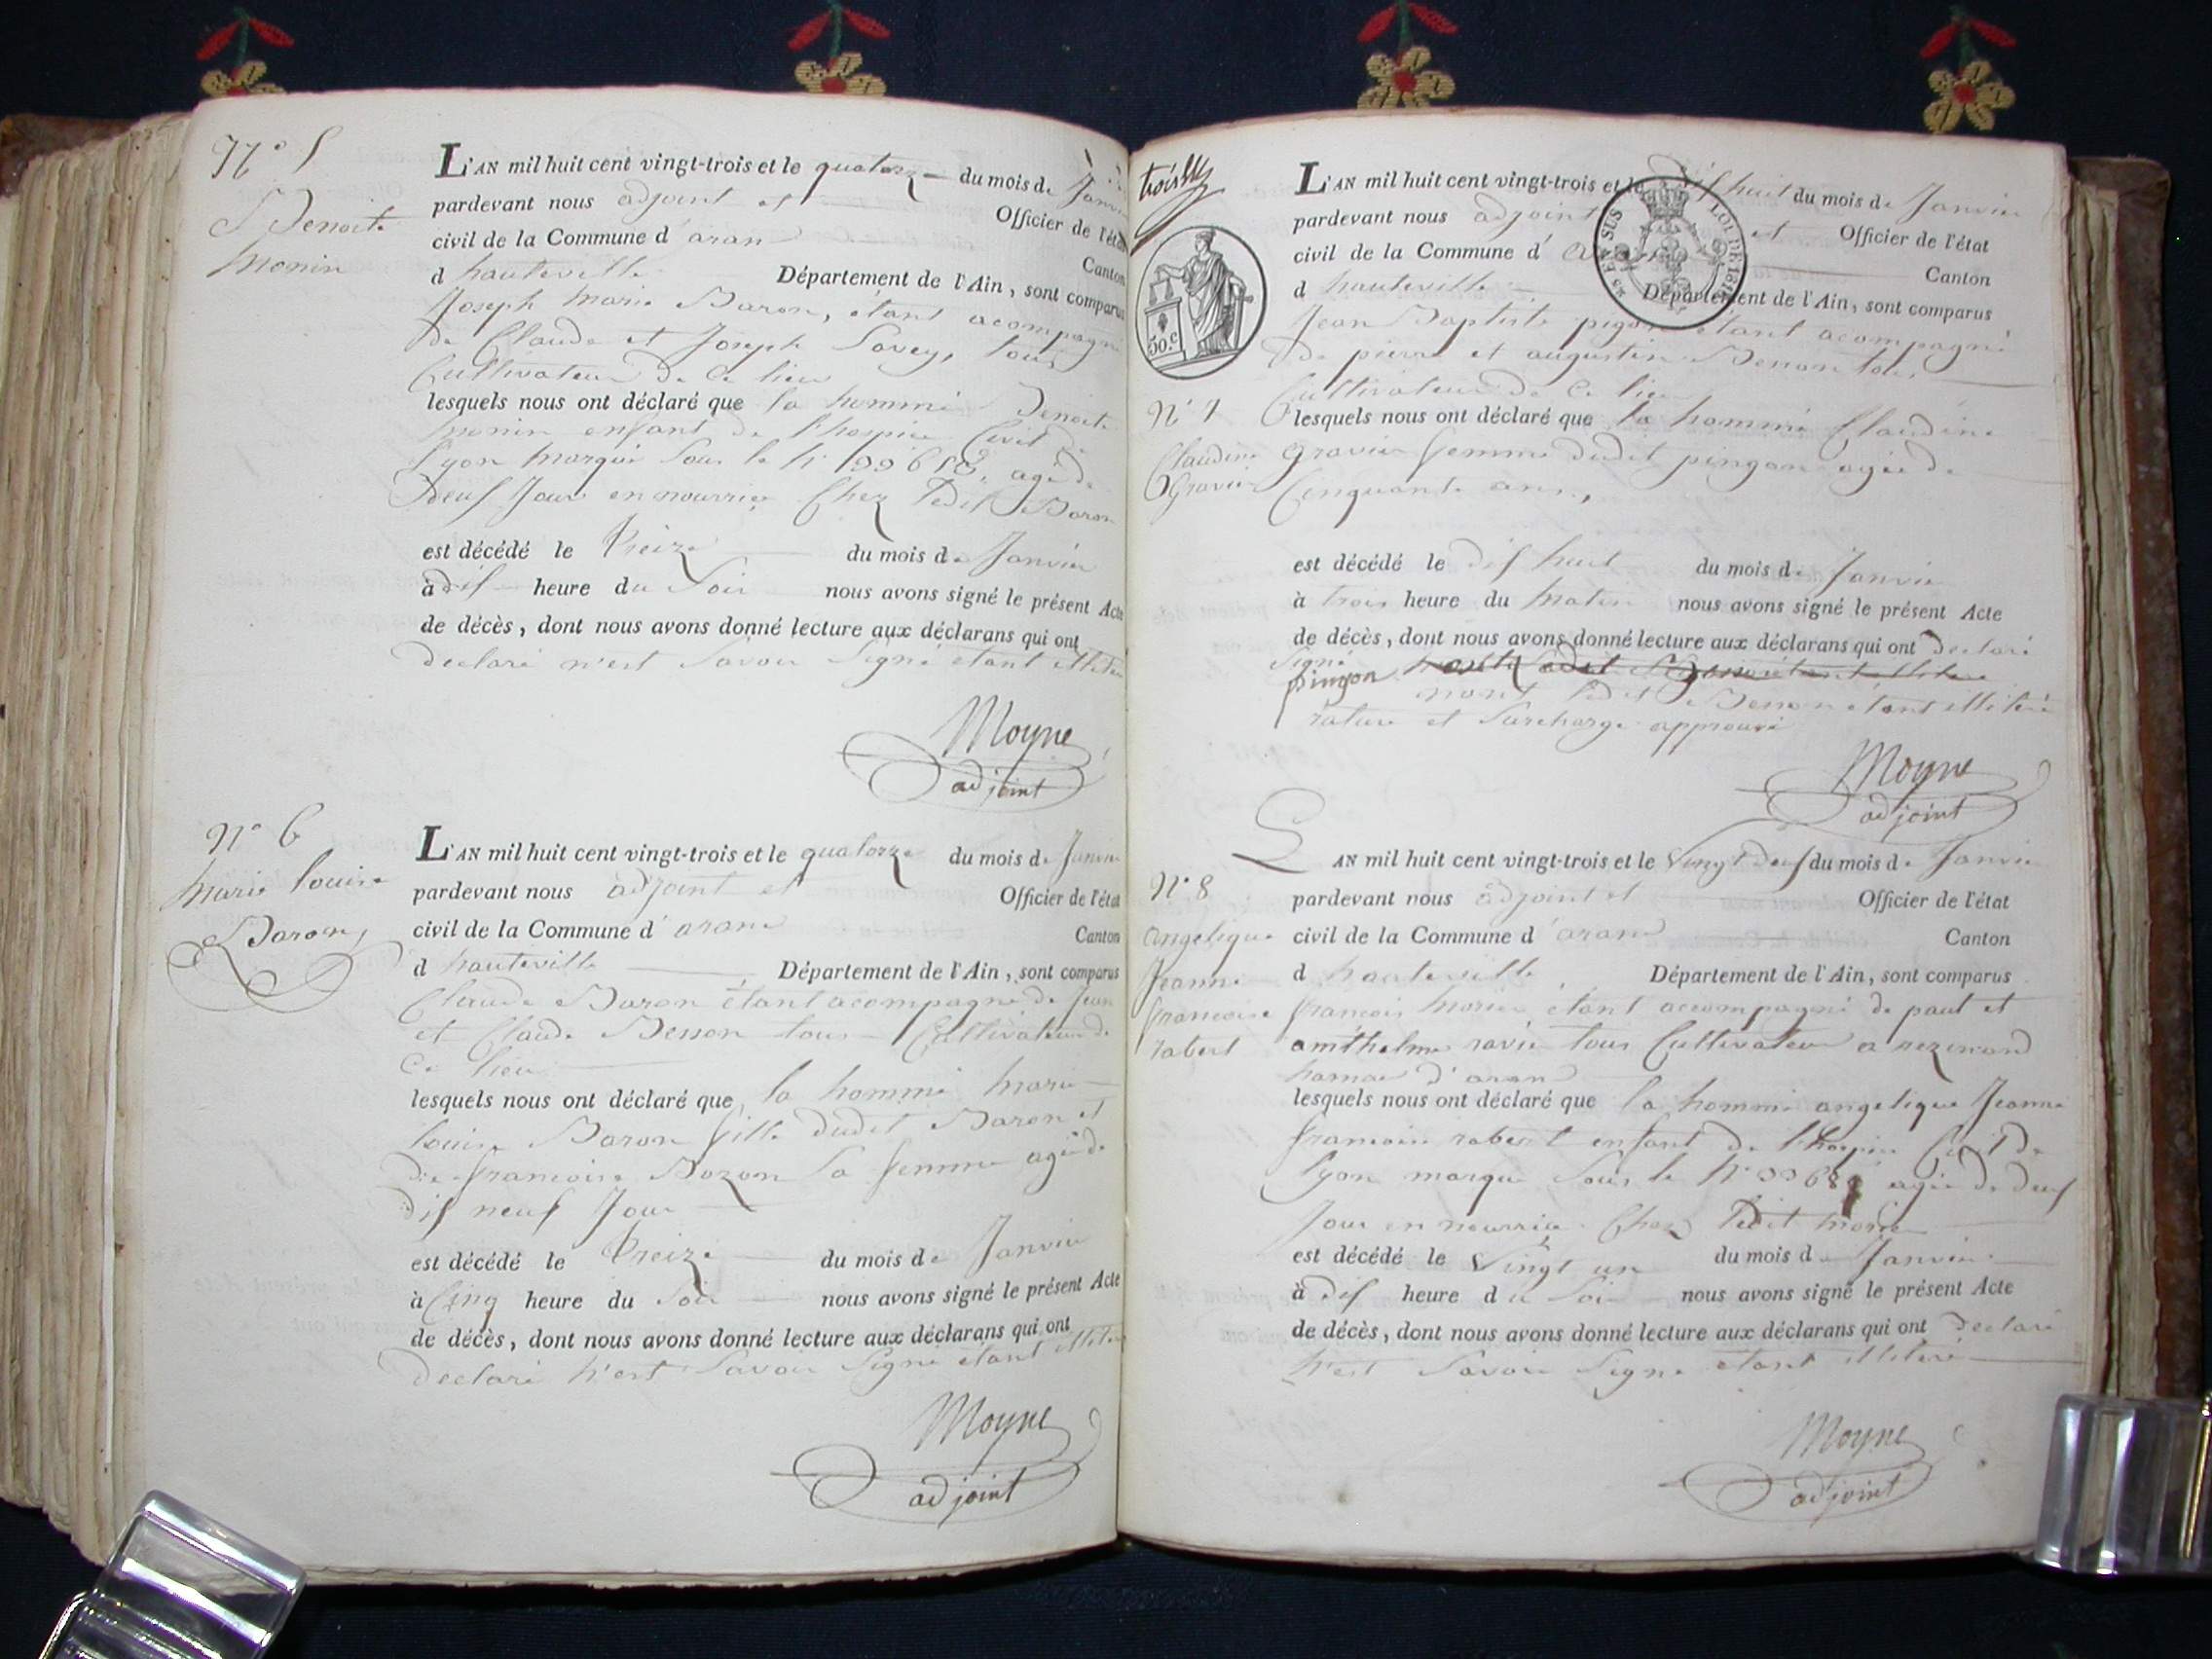 N° 5
Benoite
monin
L'AN mil huit cent vingt-trois et le quatorze du mois de Janvier
pardevant nous adjoint et Officier de l'état
civil de la Commune d'aran Canton
d hauteville Département de l'Ain, sont comparus
Joseph marie Baron, étant acompagné
de Claude et Joseph Savey, tous
Cultivateur de ce lieu
lesquels nous ont déclaré que la hommé Benoite
monin enfant de l'hospice Civil de
Lyon marqué sous le N° agé de
Jour en nourrice Chez ledit Baron
est décédé le treize du mois de Janvier
à dis heure du Soir nous avons signé le présent Acte
de décès, dont nous avons donné lecture aux déclarans qui ont
declaré n'est Savoir Signé étant illiteré
Moyne
adjoint
N° 6
marie louise
Baron,
L'AN mil huit cent vingt-trois et le quatorze du mois de Janvier
pardevant nous adjoint et Officier de l'état
civil de la Commune d'aran Canton
d hauteville Département de l'Ain, sont comparus
Claude Baron étant acompagné de Jean
et Claude Benon tous Cultivateur de
Ce lieu
lesquels nous ont déclaré que la hommé marie
louise Baron fille dudit Baron et
de francoise Bozon sa femme agée de
dis neuf Jour
est décédé le treize du mois de Janvier
à Cinq heure du Soir nous avons signé le présent Acte
de décès, dont nous avons donné lecture aux déclarans qui ont
declaré n'est Savoir Signé étant illiteré
Moyne
adjoint
50.c
L'AN mil huit cent vingt-trois et le dishuit du mois de Janvier
pardevant nous adjoint et Officier de l'état
civil de la Commune d'aran Canton
d hauteville Département de l'Ain, sont comparus
EN SUS LOI DE 1816
Jean Baptiste pigon étant acompagné
de pierre et augustin Benon tous
Cultivateur de Ce lieu
N° 7
Claudine
Gravier
lesquels nous ont déclaré que la hommé Claudine
Gravier femme dudit pingon agée de
Cinquante ans,
est décédé le dis huit du mois de Janvier
à trois heure du matin nous avons signé le présent Acte
de décès, dont nous avons donné lecture aux déclarans qui ont declaré
Signé
pingon
nont ledit Benon étant illiteré
rature et Surcharge approuvé
Moyne
adjoint
N° 8
angelique
Jeanne
francoise
rabert
L'AN mil huit cent vingt-trois et le Vingt deus du mois de Janvier
pardevant nous adjoint et Officier de l'état
civil de la Commune d'aran Canton
d hauteville Département de l'Ain, sont comparus
francois morier étant accompagné de paul et
amthelme ravié tous Cultivateur a rezinand
hamau d'aran
lesquels nous ont déclaré que la hommé angelique Jeanne
francoise rabert enfant de l'hospice Civil de
Lyon marqué Sous le N° agée de deus
Jour en nourrice Chez ledit
est décédé le Vingt un du mois de Janvier
à dis heure du Soir nous avons signé le présent Acte
de décès, dont nous avons donné lecture aux déclarans qui ont declaré
n'est Savoir Signé étant illiteré
Moyne
adjoint